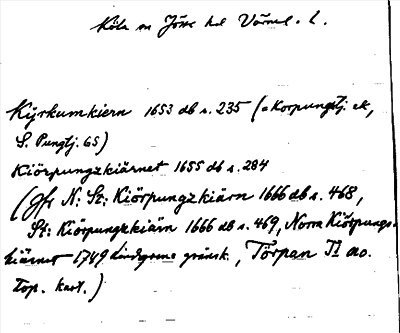 Köla sn Jösse hd Värml. l.
Kyrkumkiern 1653 db s. 235 (= Korpungstj. ek,
S. Pungtj. 65)
Kiörpungzkiärnet 1655 db s. 284
(Jfr N: St: Kiörpungzkiärn 1666 db s. 468,
St: Kiörpungzkiärn 1666 db s. 469, Norra Kiörpungs-
kiärnet 1749 Lindgrens gränsk., Törpan TI ao.
Top. kart.)